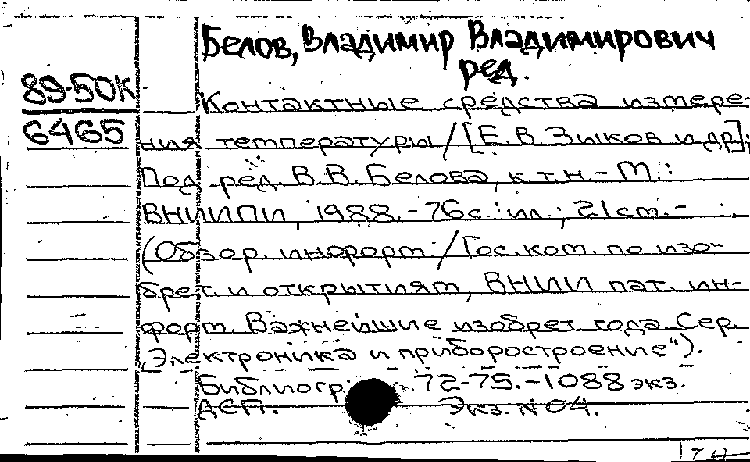 Белов, Владимир Владимирович
ред.
89-50К
6465
Контактные средства измере-
ния температуры / [Е. В. Зыков и др.];
Под ред. В. В. Белова, к.т.н. - М.:
ВНИИПИ, 1988. - 76 с.: ил.; 21 см. -
(Обзор. информ. / Гос. ком. по изо-
брет. и открытиям, ВНИИ пат. ин-
форм. Важнейшие изобрет. года. Сер.
"Электроника и приборостроение").
Библиогр. с. 72-75. - 1088 экз.
ДСП. Экз. N 04.